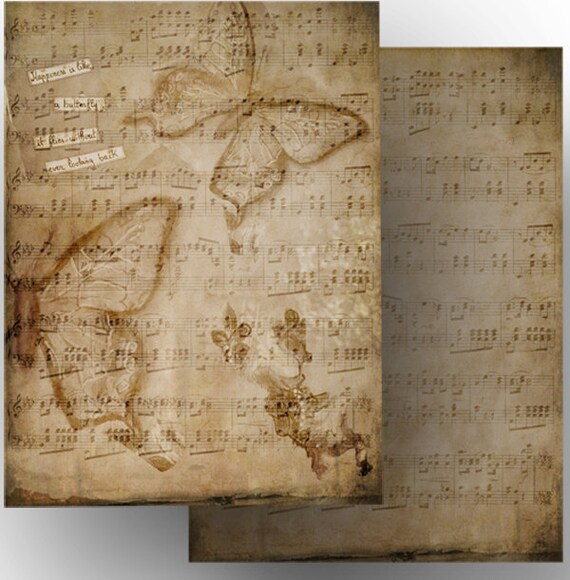 Happiness is like
a butterfly,
it flies without
ever looking back